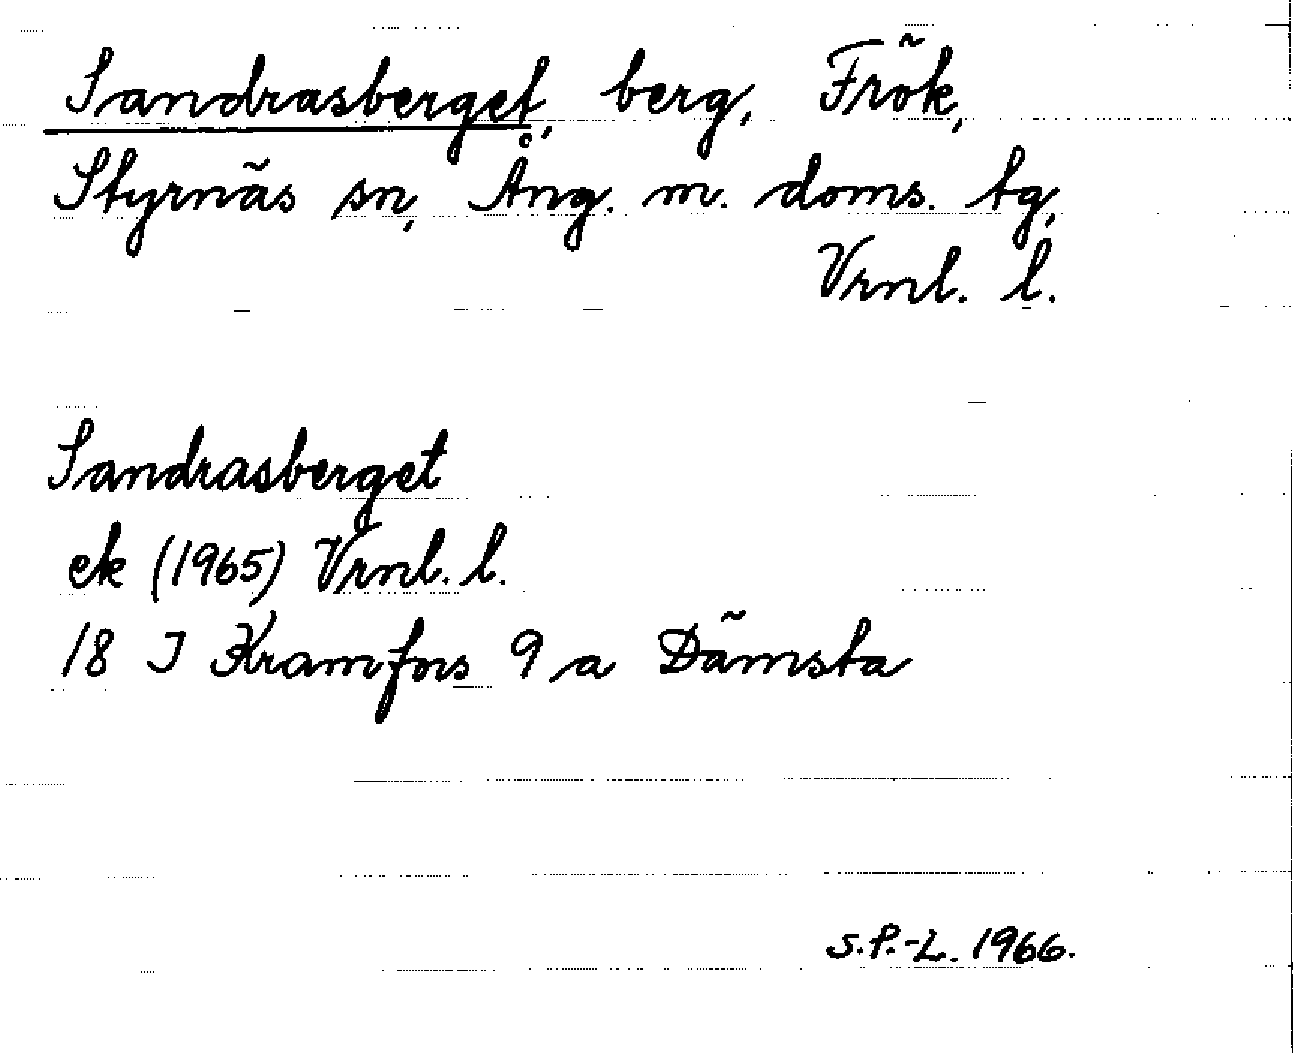 Sandrasberget, berg, Frök,
Styrnäs sn, Ång. m. doms. tg,
Vrnl. l.
Sandrasberget
ek (1965) Vrnl. l.
18 I Kramfors 9 a Dämsta
S.P.-L. 1966.